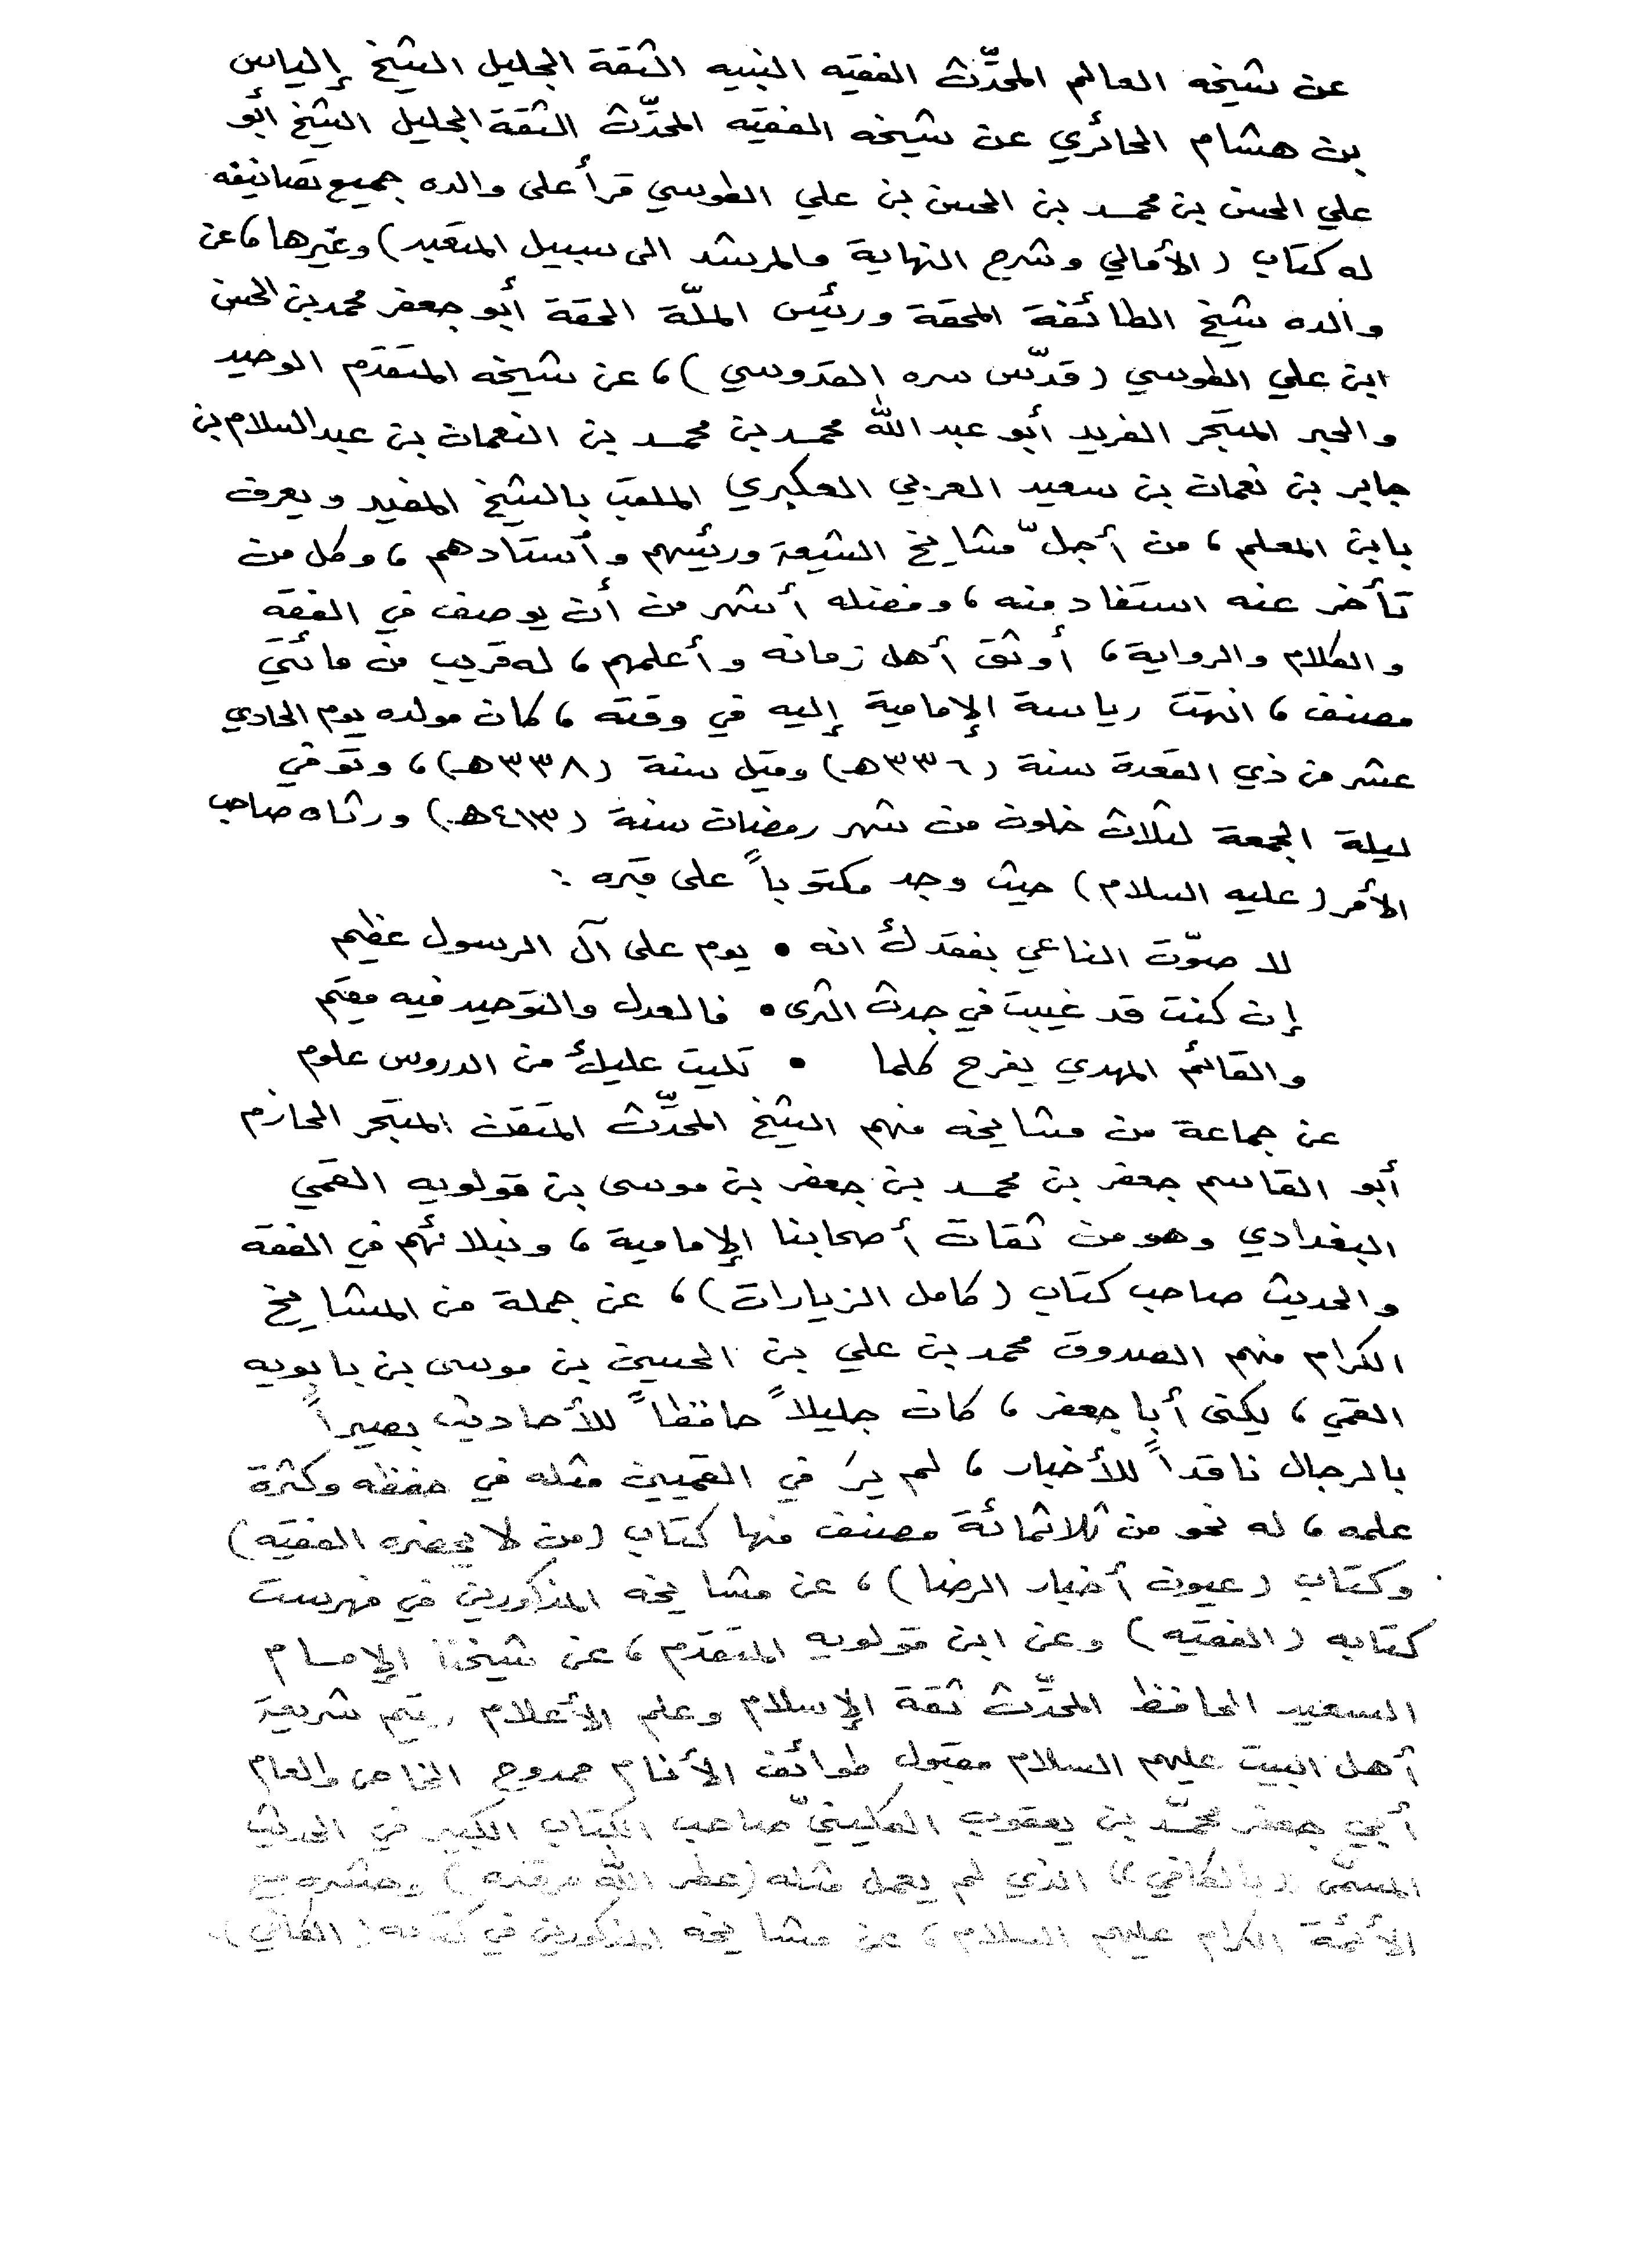 عن شيخه العالم المحدّث الفقيه النبيه الثقة الجليل الشيخ إلياس
بن هشام الحائري عن شيخه الفقيه المحدّث الثقة الجليل الشيخ أبو
علي الحسن بن محمد بن الحسن بن علي الطوسي قرأ على والده جميع تصانيفه
له كتاب (الأمالي وشرح النهاية والمرشد الى سبيل المتعبد) وغيرها، عن
والده شيخ الطائفة المحقة ورئيس الملّة الحقة أبو جعفر محمد بن الحسن
ابن علي الطوسي (قدّس سره القدوسي)، عن شيخه المتقدّم الوحيد
والحبر المتبحر الفريد أبو عبد الله محمد بن محمد بن النعمان بن عبد السلام بن
جابر بن نعمان بن سعيد العربي العكبري الملقب بالشيخ المفيد ويعرف
بابن المعلم، من أجلّ مشايخ الشيعة ورئيسهم وأستادهم، وكل من
تأخر عنه استفاد منه، وفضله أشهر من أن يوصف في الفقه
والكلام والرواية، أوثق أهل زمانه وأعلمهم، له قريب من مائتي
مصنف، انتهت رياسة الإمامية إليه في وقته، كان مولده يوم الحادي
عشر من ذي القعدة سنة (٣٣٦هـ) وقيل سنة (٣٣٨هـ)، وتوفي
ليلة الجمعة لثلاث خلون من شهر رمضان سنة (٤١٣هـ) ورثاه صاحب
الأمر (عليه السلام) حيث وجد مكتوباً على قبره :
لا صوّت الناعي بفقدك انه • يوم على آل الرسول عظيم
إن كنت قد غيبت في جدث الثرى • فالعدل والتوحيد فيه مقيم
والقائم المهدي يفرح كلما • تليت عليك من الدروس علوم
عن جماعة من مشايخه منهم الشيخ المحدّث المتقن المتبحر الحازم
أبو القاسم جعفر بن محمد بن جعفر بن موسى بن قولويه القمي
البغدادي وهو من ثقات أصحابنا الإمامية، ونبلائهم في الفقه
والحديث صاحب كتاب (كامل الزيارات)، عن جملة من المشايخ
الكرام منهم الصدوق محمد بن علي بن الحسين بن موسى بن بابويه
القمي، يكنى أبا جعفر، كان جليلاً حافظاً للأحاديث بصيراً
بالرجال ناقداً للأخبار، لم يرَ في القميين مثله في حفظه وكثرة
علمه، له نحو من ثلاثمائة مصنف منها كتاب (من لا يحضره الفقيه)
وكتاب (عيون أخبار الرضا)، عن مشايخه المذكورين في فهرست
كتابه (الفقيه) وعن ابن قولويه المتقدّم، عن شيخنا الإمام
السعيد الحافظ المحدّث ثقة الإسلام وعلم الأعلام يتم شريعة
أهل البيت عليهم السلام مقبول طوائف الأنام ممدوح الخاص والعام
أبي جعفر محمّد بن يعقوب الكلينيّ صاحب الكتاب الكبير في الحديث
المسمّى (بالكافي) الذي لم يعمل مثله (عطر الله مرقده) وحشره مع
الأئمة الكرام عليهم السلام، عن مشايخه المذكورين في كتابه (الكافي).